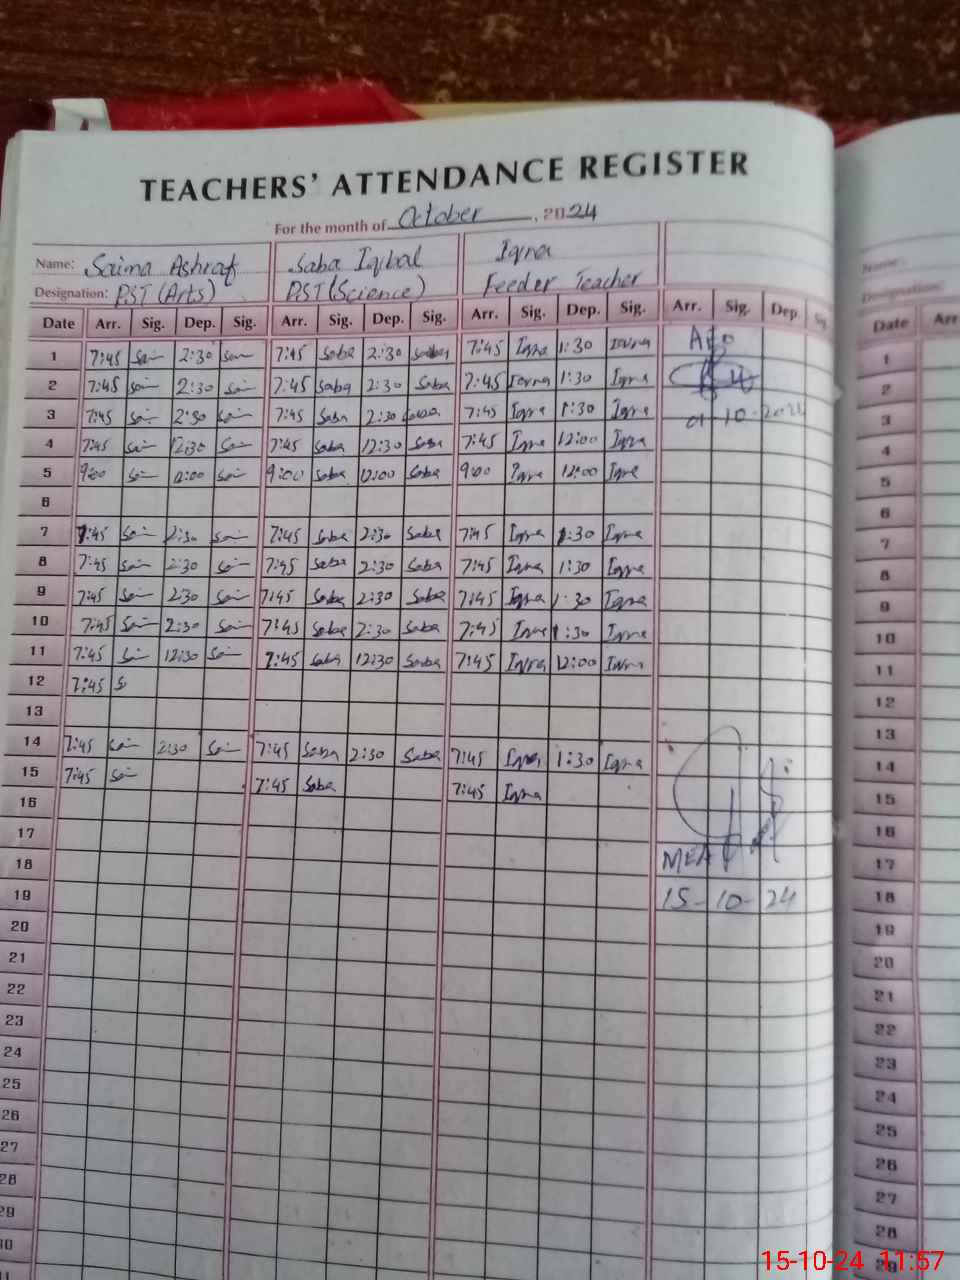 TEACHERS' ATTENDANCE REGISTER
For the month of October, 2024
Name: Saima Ashraf Saba Iqbal Iqra
Designation: PST (Arts) PST (Science) Feeder Teacher
Date Arr. Sig. Dep. Sig. Arr. Sig. Dep. Sig. Arr. Sig. Dep. Sig. Arr. Sig. Dep. Sig.
1 7:45 Sai 2:30 Sai 7:45 Saba 2:30 Saba 7:45 Iqra 1:30 Iqra AEO
2 7:45 Sai 2:30 Sai 7:45 Saba 2:30 Saba 7:45 Iqra 1:30 Iqra
3 7:45 Sai 2:30 Sai 7:45 Saba 2:30 Saba 7:45 Iqra 1:30 Iqra 01-10-2024
4 7:45 Sai 12:30 Sai 7:45 Saba 12:30 Saba 7:45 Iqra 12:00 Iqra
5 9:00 Sai 12:00 Sai 9:00 Saba 12:00 Saba 9:00 Iqra 12:00 Iqra
6
7 7:45 Sai 2:30 Sai 7:45 Saba 2:30 Saba 7:45 Iqra 1:30 Iqra
8 7:45 Sai 2:30 Sai 7:45 Saba 2:30 Saba 7:45 Iqra 1:30 Iqra
9 7:45 Sai 2:30 Sai 7:45 Saba 2:30 Saba 7:45 Iqra 1:30 Iqra
10 7:45 Sai 2:30 Sai 7:45 Saba 2:30 Saba 7:45 Iqra 1:30 Iqra
11 7:45 Sai 12:30 Sai 7:45 Saba 12:30 Saba 7:45 Iqra 12:00 Iqra
12 7:45 S
13
14 7:45 Sai 2:30 Sai 7:45 Saba 2:30 Saba 7:45 Iqra 1:30 Iqra
15 7:45 Sai 7:45 Saba 7:45 Iqra
16
17
18 MEA
19 15-10-24
20
21
22
23
24
25
26
27
28
29
30
Name:
Designation:
Date Arr
1
2
3
4
5
6
7
8
9
10
11
12
13
14
15
16
17
18
19
20
21
22
23
24
25
26
27
28
29
15-10-24 11:57